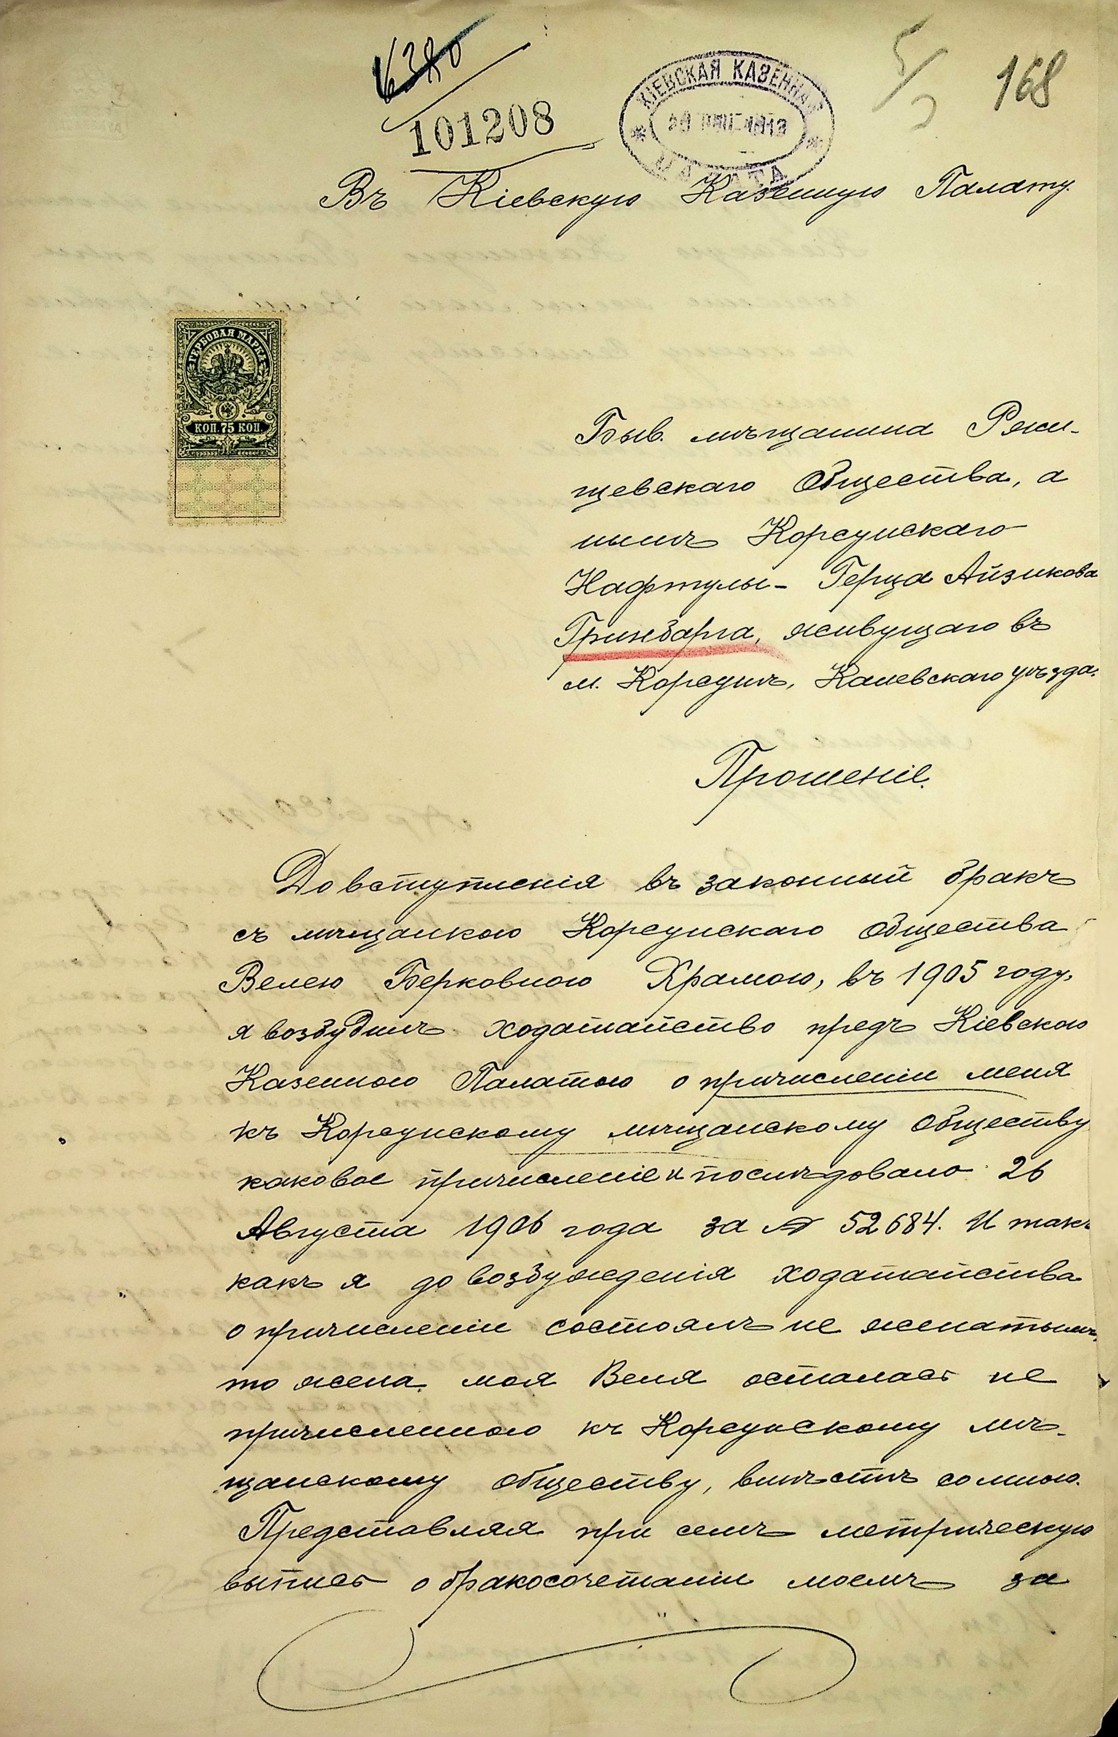 6380
101208
КІЕВСКАЯ КАЗЕННАЯ
ПАЛАТА
168
Въ Кіевскую Казенную Палату.
ГЕРБОВАЯ МАРКА
КОП. 75 КОП.
Быв. мѣщанина Ржи-
щевскаго Общества, а
нынѣ Корсунскаго
Нафтулы-Герца Айзикова
Гринбарга, живущаго въ
м. Корсунѣ, Каневскаго уѣзда.
Прошеніе.
До вступленія въ законный бракъ
съ мѣщанкою Корсунскаго общества
Велею Берковною Храмою, въ 1905 году,
я возбудилъ ходатайство предъ Кіевскою
Казенною Палатою о причисленіи меня
къ Корсунскому мѣщанскому обществу
каковое причисленіе и послѣдовало 26
Августа 1906 года за № 52684. И такъ
какъ я до возбужденія ходатайства
о причисленіи состоялъ не женатымъ,
то жена моя Веля осталась не
причисленною къ Корсунскому мѣ-
щанскому обществу, вмѣстѣ со мною.
Представляя при семъ метрическую
выпись о бракосочетаніи моемъ за